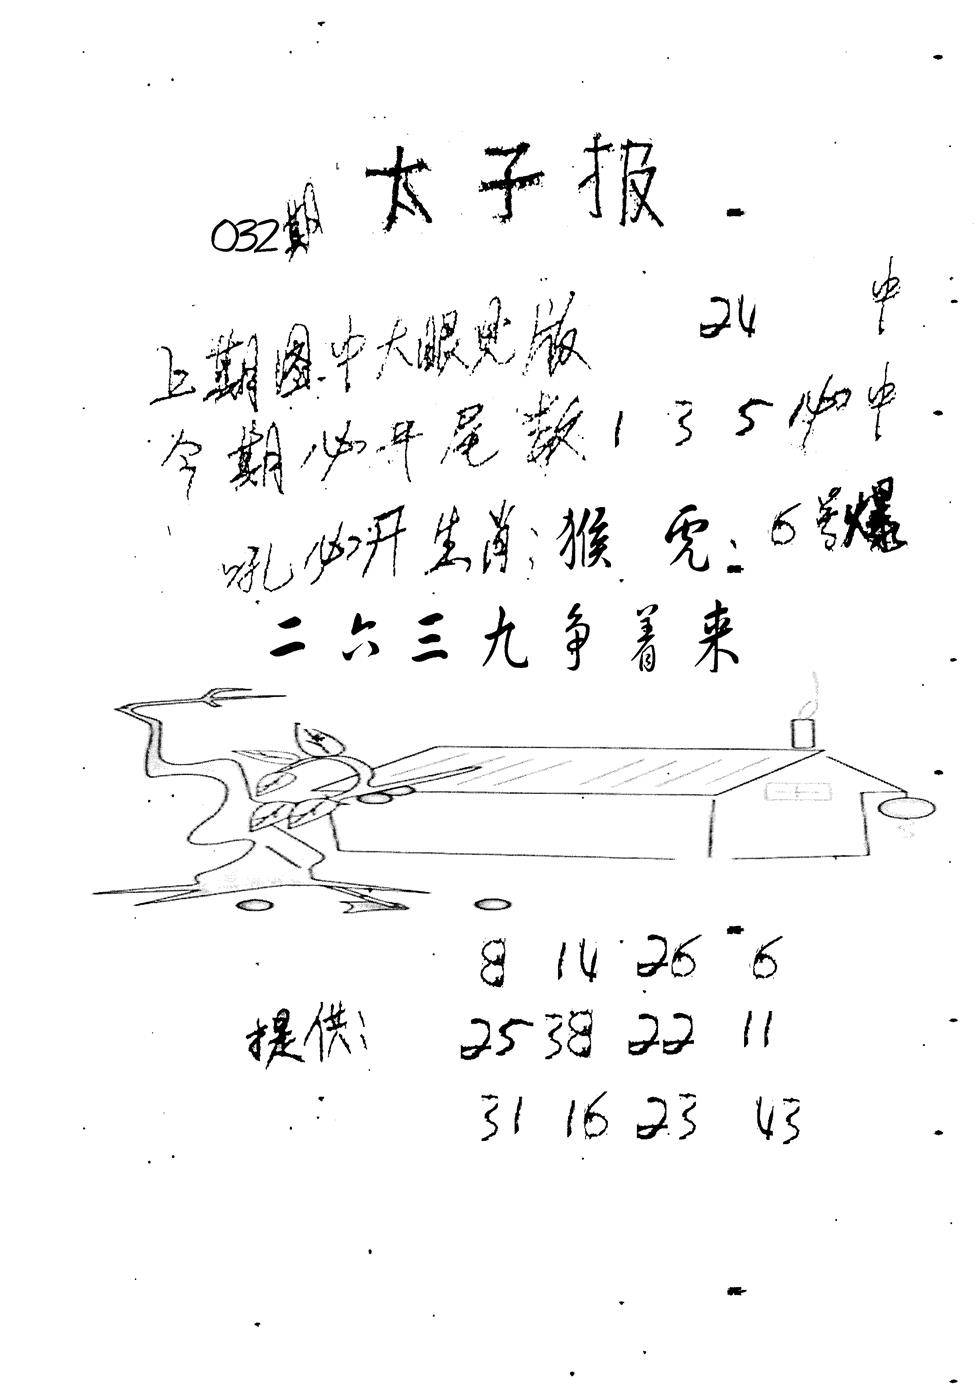 太子报
032期
上期图中大眼见版 24 中
今期必开尾数 1 3 5 必中
吼必开生肖:猴 虎: 6号爆
二六三九争着来
8 14 26 6
提供: 25 38 22 11
31 16 23 43